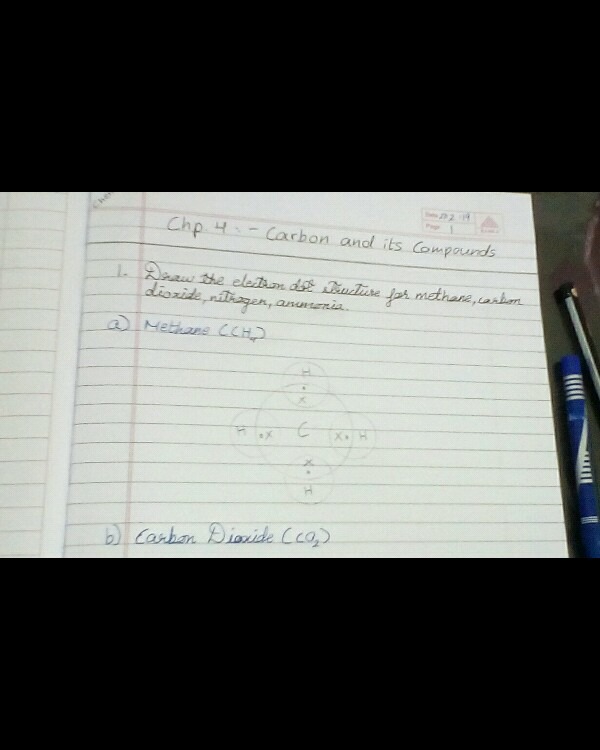 Date
Page 1
Chp 4 :- Carbon and its Compounds
1. Draw the electron dot structure for methane, carbon
dioxide, nitrogen, ammonia.
a) Methane (CH₄)
H
x
H •x C x• H
x
H
b) Carbon Dioxide (CO₂)